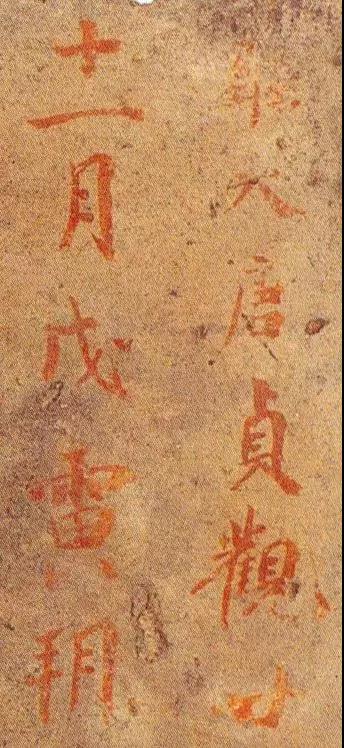 維大唐貞觀廿
十一月戊寅朔